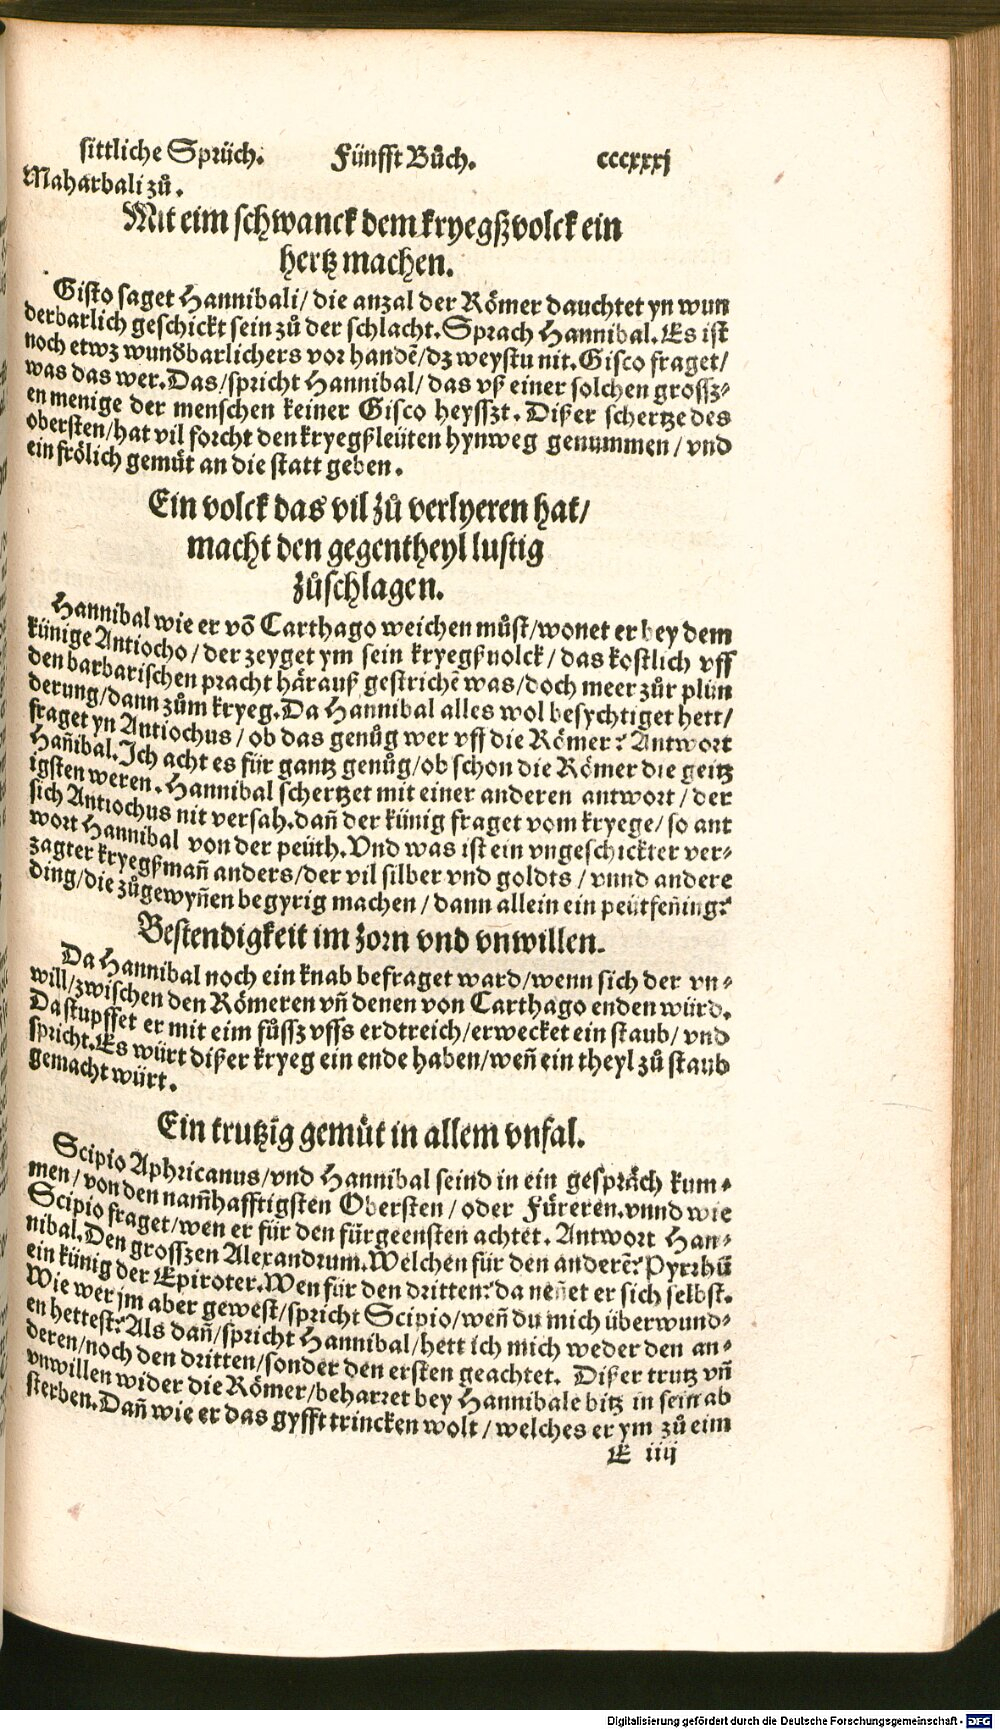 sittliche Sprüch. Fünfft Bůch. cccxxxj
Maharbali zů.
Mit eim schwanck dem kryegßvolck ein
hertz machen.
Gisko saget Hannibali/ die anzal der Römer dauchtet yn wun
derbarlich geschickt sein zů der schlacht. Sprach Hannibal. Es ist
noch etwz wundbarlichers vor handē/ dz weystu nit. Gisco fraget/
was das wer. Das/ spricht Hannibal/ das vß einer solchen grossz⸗
en menige der menschen keiner Gisco heysszt. Dißer schertze des
obersten/ hat vil forcht den kryegßleüten hynweg genummen/ vnd
ein frölich gemüt an die statt geben.
Ein volck das vil zů verlyeren hat/
macht den gegentheyl lustig
zůschlagen.
Hannibal wie er vō Carthago weichen můst/ wonet er bey dem
künige Antiocho/ der zeyget ym sein kryegßvolck/ das kostlich vff
den barbarischen pracht härauß gestrichē was/ doch meer zůr plün
derung/ dann zům kryeg. Da Hannibal alles wol besychtiget hett/
fraget yn Antiochus/ ob das genůg wer vff die Römer? Antwort
Hañibal. Ich acht es für gantz genůg/ ob schon die Römer die geitz
igsten weren. Hannibal schertzet mit einer anderen antwort/ der
sich Antiochus nit versah. dañ der künig fraget vom kryege/ so ant
wort Hannibal von der peüth. Vnd was ist ein vngeschickter ver⸗
zagter kryegßmañ anders/ der vil silber vnd goldts/ vnnd andere
ding/ die zůgewyñen begyrig machen/ dann allein ein peütfeñing?
Bestendigkeit im zorn vnd vnwillen.
Da Hannibal noch ein knab befraget ward/ wenn sich der vn⸗
will/ zwischen den Römeren vñ denen von Carthago enden würd.
Da stupffet er mit eim fůssz vffs erdtreich/ erwecket ein staub/ vnd
spricht. Es würt dißer kryeg ein ende haben/ weñ ein theyl zů staub
gemacht würt.
Ein trutzig gemüt in allem vnfal.
Scipio Aphricanus/ vnd Hannibal seind in ein gespräch kum⸗
men/ von den nam̄hafftigsten Obersten/ oder Füreren. vnnd wie
Scipio fraget/ wen er für den fürgeensten achtet. Antwort Han⸗
nibal. Den grosszen Alexandrum. Welchen für den anderē? Pyrrhū
ein künig der Epiroter. Wen für den dritten? da neñet er sich selbst.
Wie wer jm aber gewest/ spricht Scipio/ weñ du mich überwund⸗
en hettest? Als dañ/ spricht Hannibal/ hett ich mich weder den an⸗
deren/ noch den dritten/ sonder den ersten geachtet. Dißer trutz vñ
vnwillen wider die Römer/ beharret bey Hannibale bitz in sein ab
sterben. Dañ wie er das gyfft trincken wolt/ welches er ym zů eim
E iiij
Digitalisierung gefördert durch die Deutsche Forschungsgemeinschaft - DFG